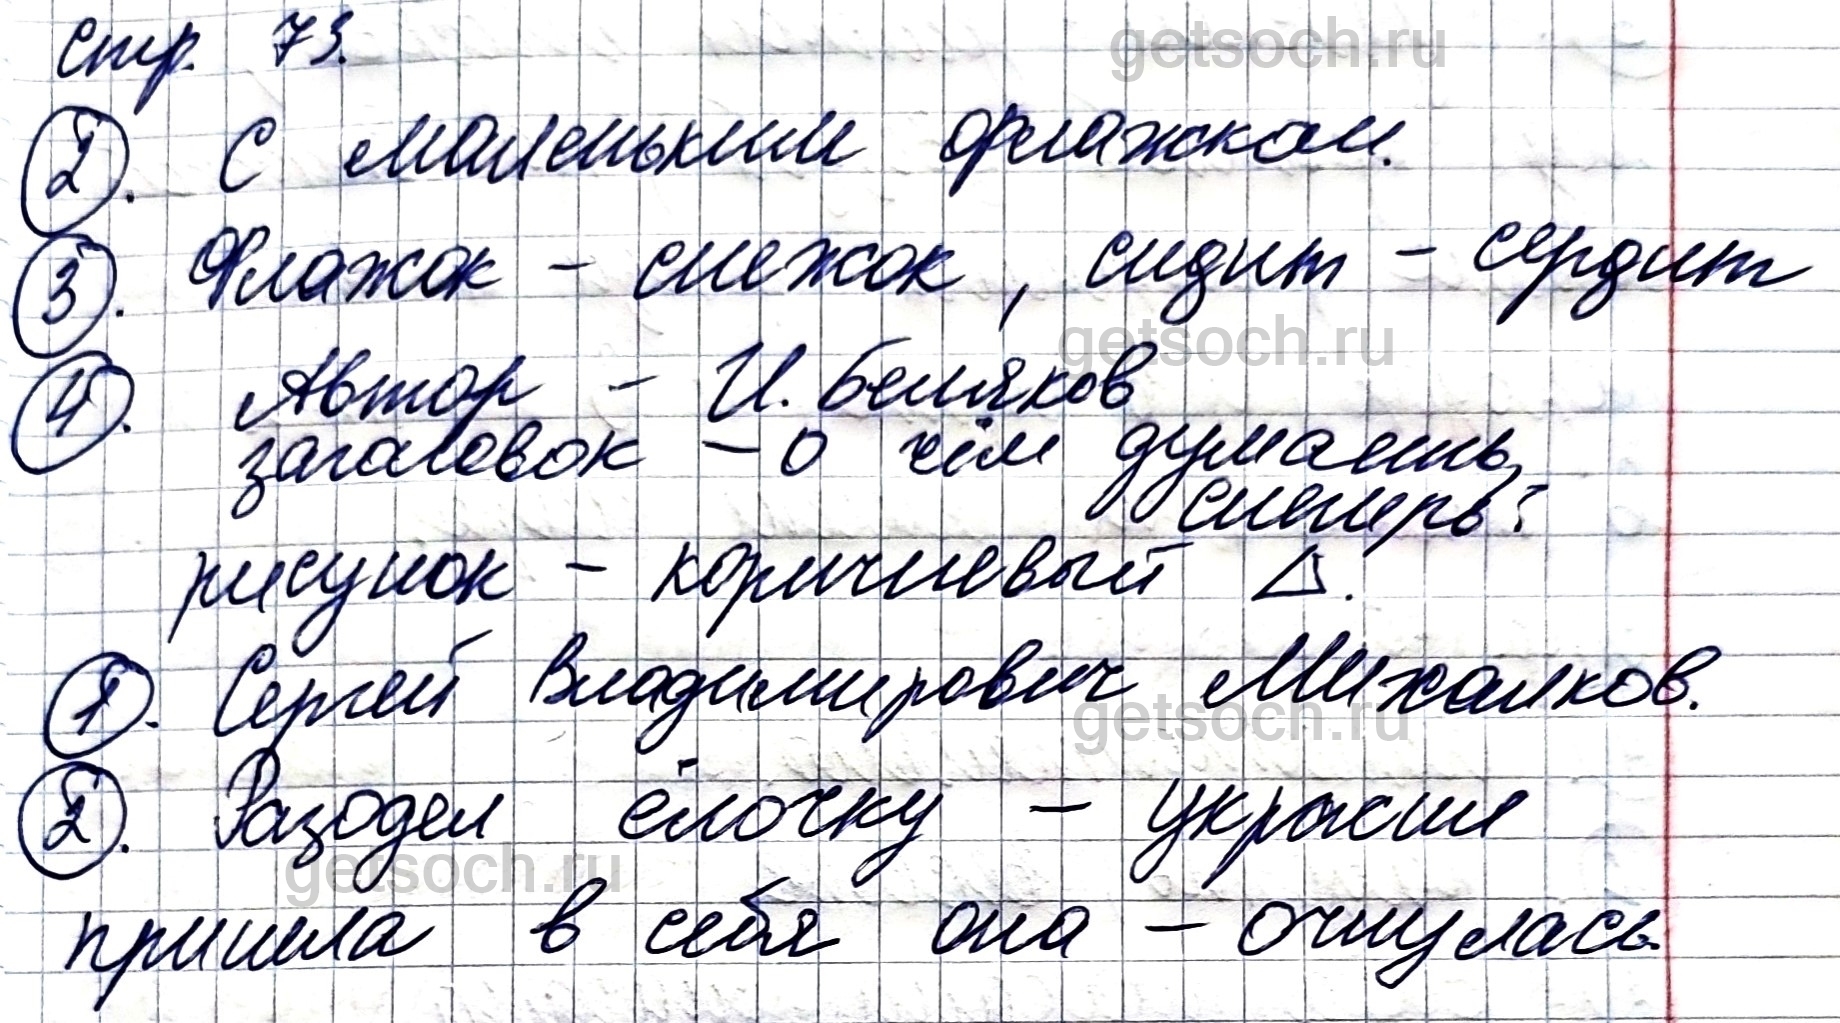 стр. 73.
getsoch.ru
2. С маленьким флажком.
3. Флажок – снежок, сидит – сердит
getsoch.ru
4. Автор – И. Беляков
заголовок – о чём думаешь,
снегирь?
рисунок – коричневый Δ.
1. Сергей Владимирович Михалков.
getsoch.ru
2. Разодел ёлочку – украсил
getsoch.ru
пришла в себя она – очнулась.